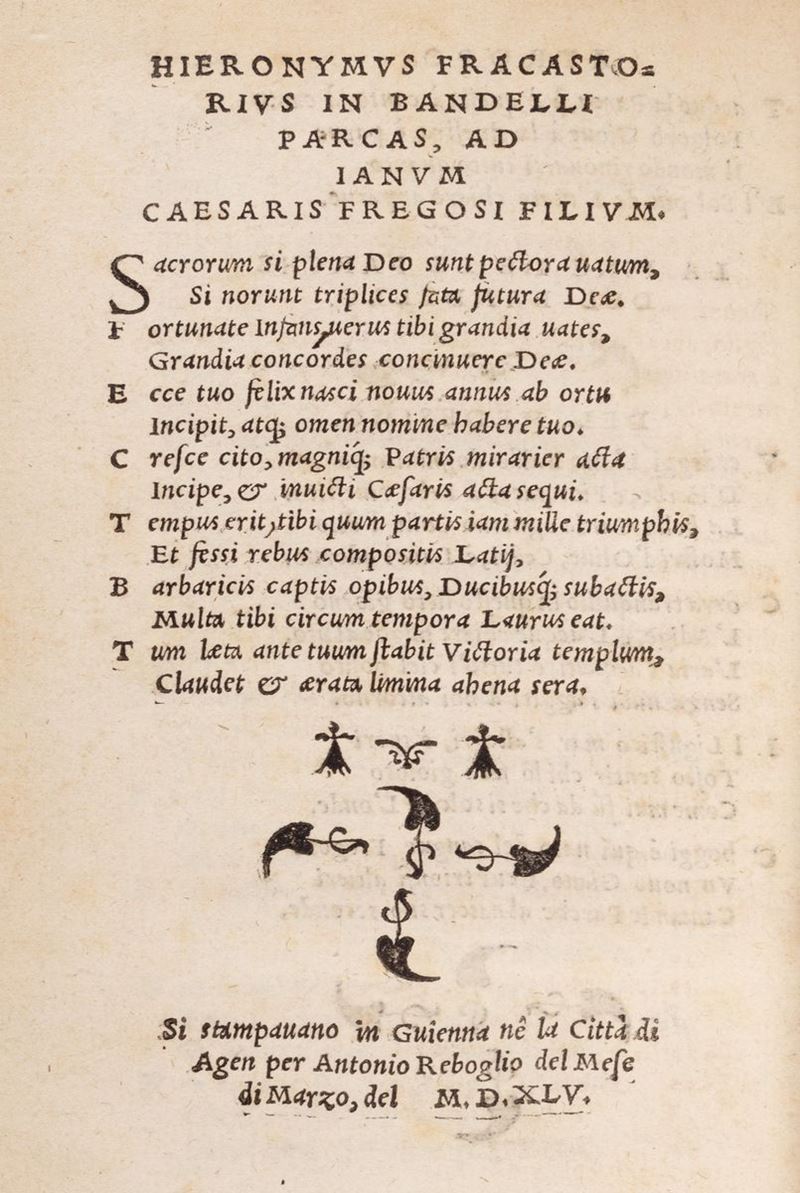 HIERONYMVS FRACASTO=
RIVS IN BANDELLI
PARCAS, AD
IANVM
CAESARIS FREGOSI FILIVM.
Sacrorum si plena Deo sunt pectora uatum,
Si norunt triplices fata futura Deæ.
Fortunate Infans, uerus tibi grandia uates,
Grandia concordes concinuere Deæ.
Ecce tuo felix nasci nouus annus ab ortu
Incipit, atq; omen nomine habere tuo.
Creſce cito, magniq́; Patris mirarier acta
Incipe, & inuicti Cæſaris acta sequi.
Tempus erit, tibi quum partis iam mille triumphis,
Et feſſi rebus compositis Latij,
Barbaricis captis opibus, Ducibusq́; subactis,
Multa tibi circum tempora Laurus eat.
Tum læta ante tuum ſtabit Victoria templum,
Claudet & ærata limina ahena sera.
Si stampauano in Guienna nê la Città di
Agen per Antonio Reboglio del Meſe
di Marzo, del M. D. XLV.